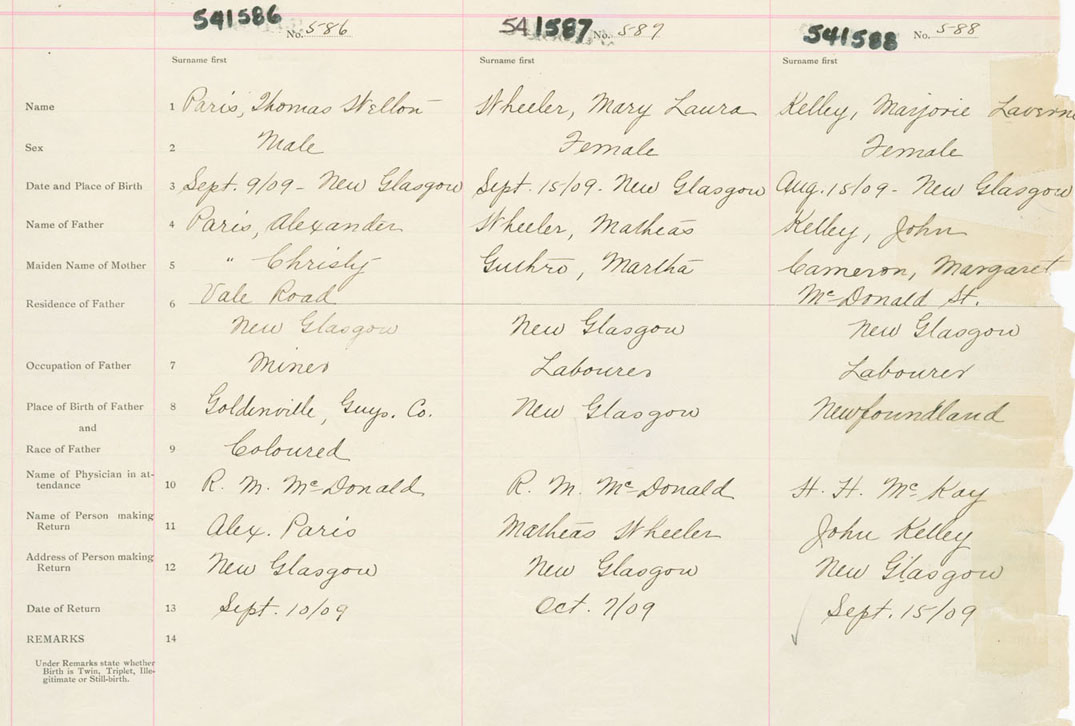 541586 No. 586 541587 No. 587 541588 No. 588
Surname first Surname first Surname first
Name 1 Paris, Thomas Wheeler, Mary Laura Kelley, Marjorie Lavern
Sex 2 Male Female Female
Date and Place of Birth 3 Sept. 9/09 - New Glasgow Sept. 15/09 - New Glasgow Aug. 15/09 - New Glasgow
Name of Father 4 Paris, Alexander Wheeler, Matheas Kelley, John
Maiden Name of Mother 5 " Christy Guthro, Martha Cameron, Margaret
Residence of Father 6 Vale Road McDonald St.
New Glasgow New Glasgow New Glasgow
Occupation of Father 7 Miner Labourer Labourer
Place of Birth of Father 8 Goldenville, Guys. Co. New Glasgow Newfoundland
and
Race of Father 9 Coloured
Name of Physician in at-
tendance 10 R. M. McDonald R. M. McDonald H. H. McKay
Name of Person making
Return 11 Alex. Paris Matheas Wheeler John Kelley
Address of Person making
Return 12 New Glasgow New Glasgow New Glasgow
Date of Return 13 Sept. 10/09 Oct. 7/09 Sept. 15/09
REMARKS 14
Under Remarks state whether
Birth is Twin, Triplet, Ille-
gitimate or Still-birth.